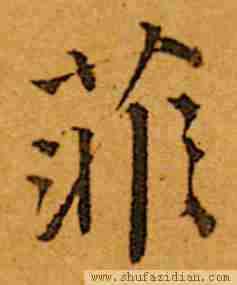 菲
www.shufazidian.com